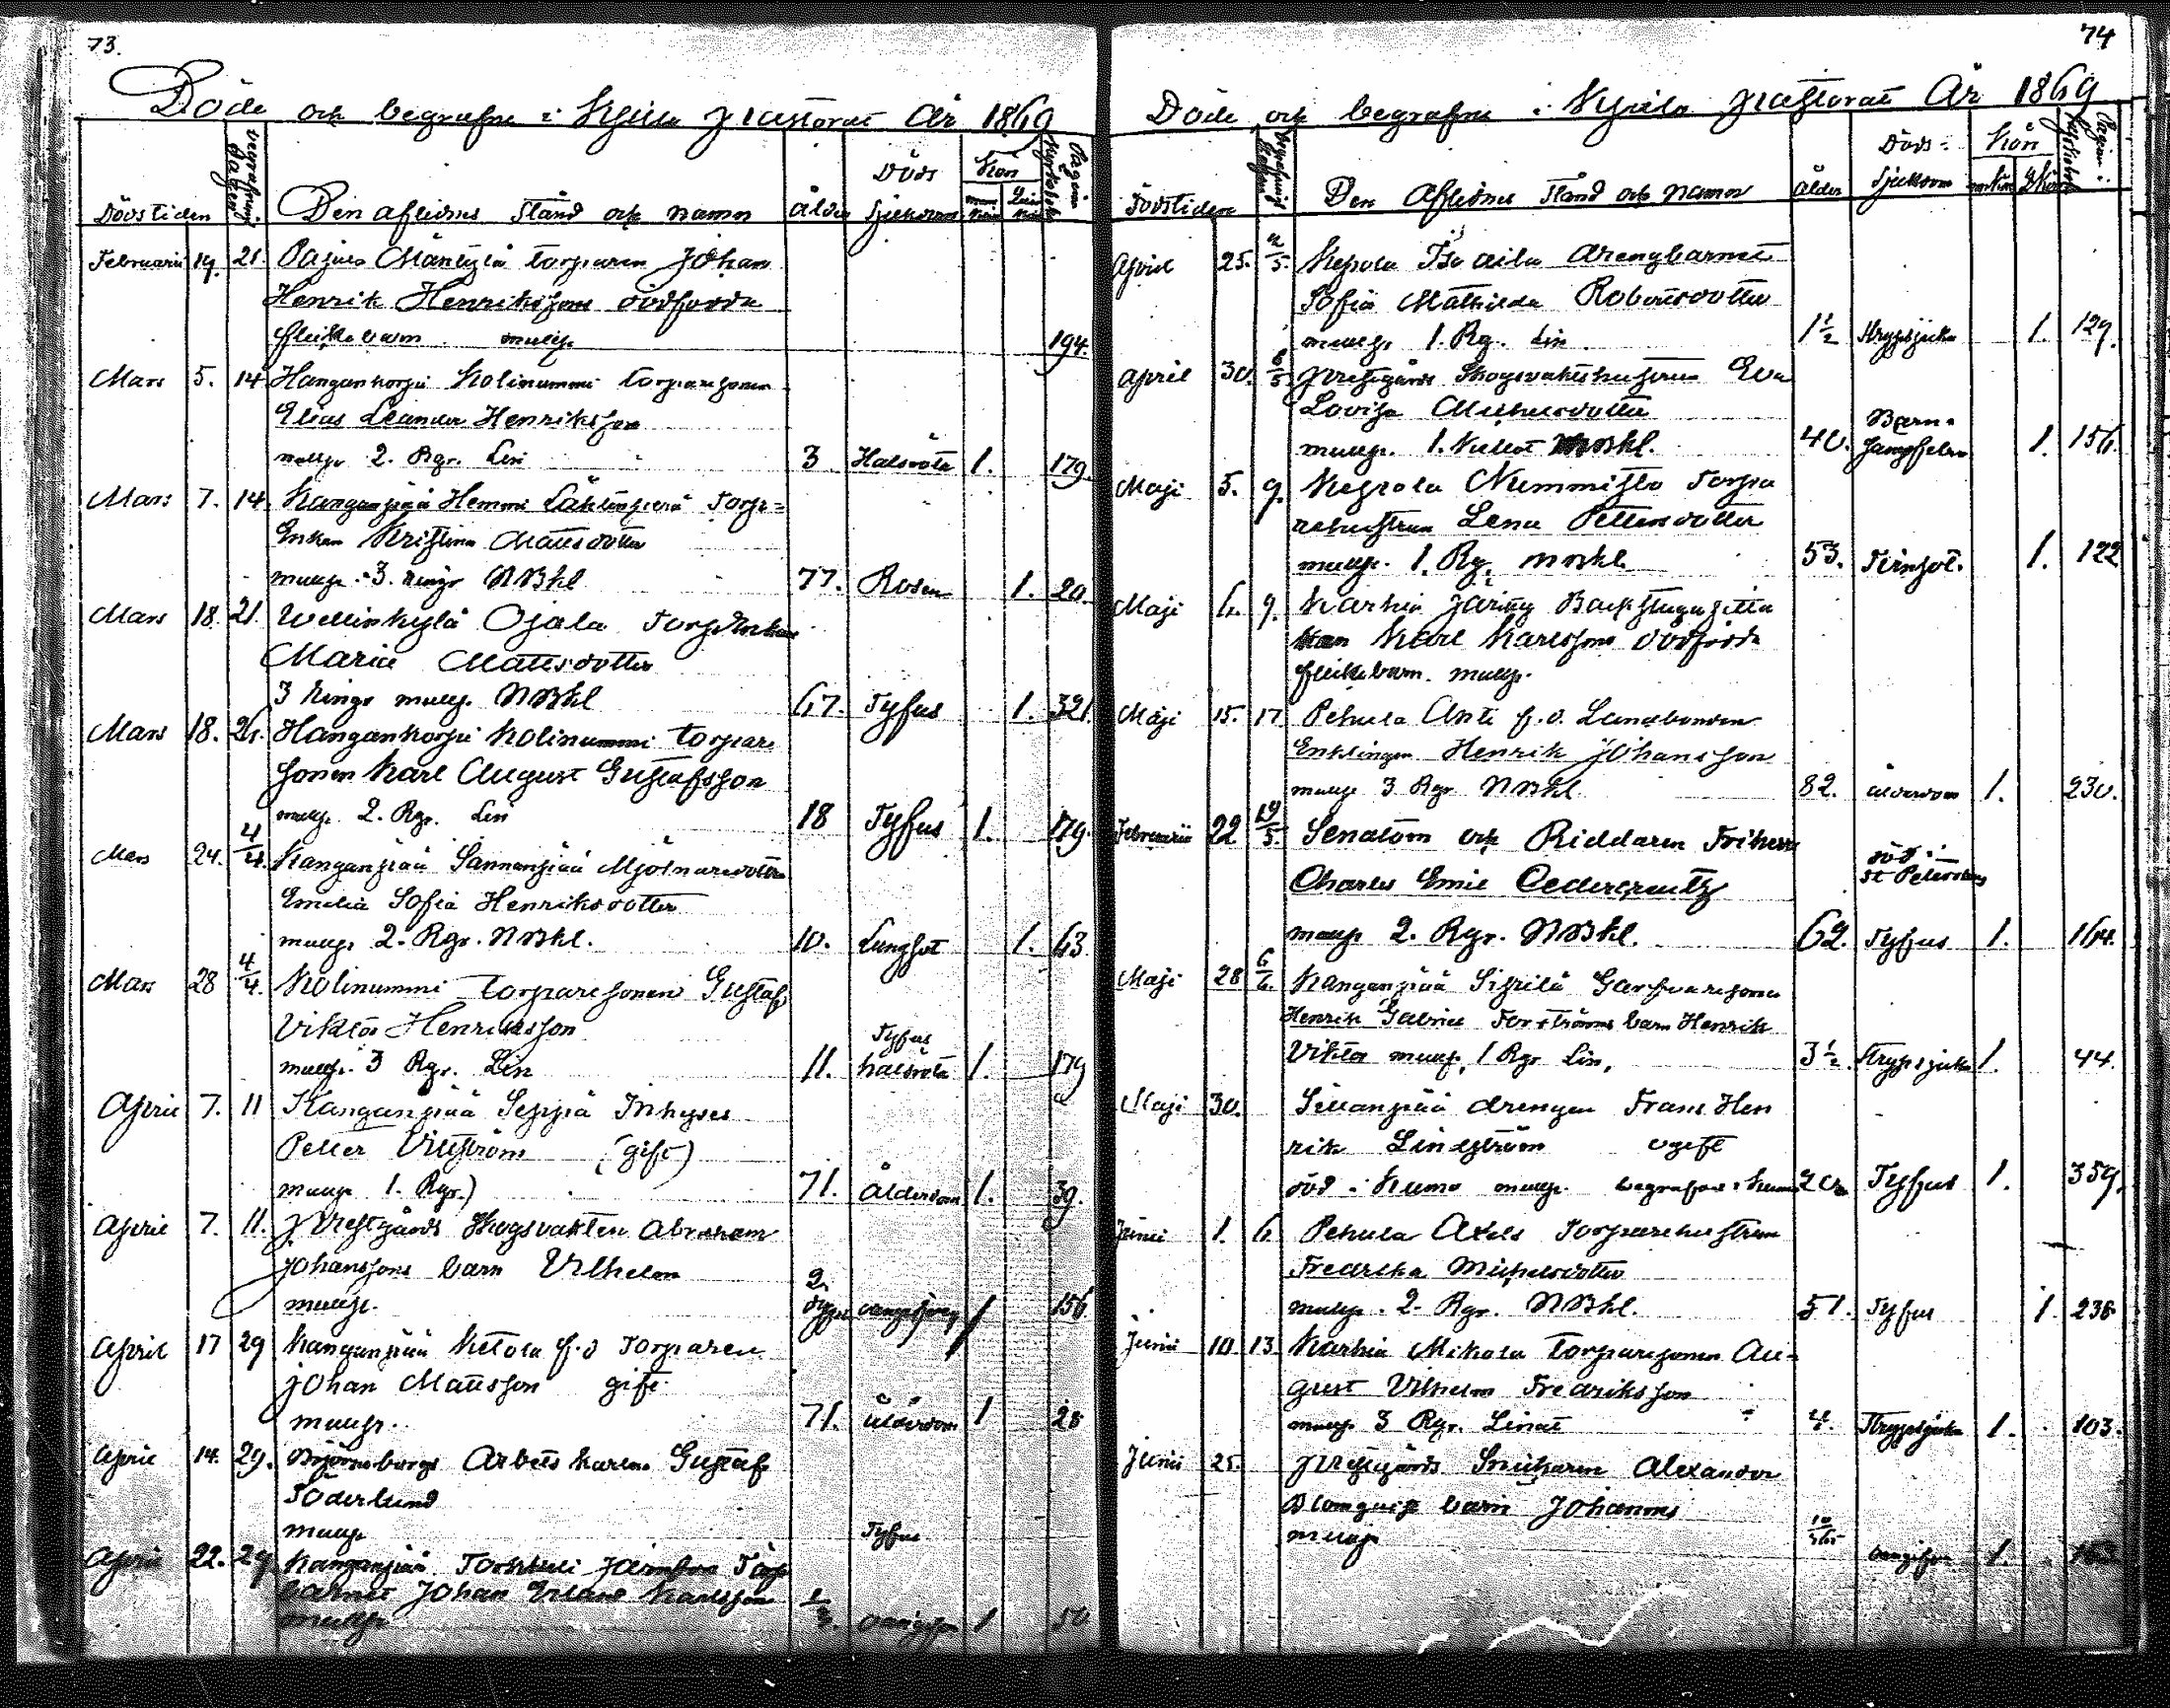 73.
Döde och begrafne i Kjulo pastorat År 1869
Dödstiden Begrafnings dagen Den aflidnes Stånd och namn ålder Döds Sjukdom Kön mankön Qvinkön Pagina i Kyrkobok
Februarii 19. 21. Pajula Mäntylä torparen Johan
Henrik Henrikssons dödfödda
flickebarn 194.
Mars 5. 14 Hangankorpi Kolinummi torparesonen
Elias Leander Henriksson
2. Rgr. Lin 3 Halsröta 1. 179.
Mars 7. 14. Kanganpää Hemmi Torp=
Enkan Kristina Mattsdotter
3. 77. Rosen 1. 20.
Mars 18. 21. Wellinkylä Ojala Torp Enkan
Maria Mattsdotter
3 67. Tyfus 1. 321.
Mars 18. 26. Hangankorpi Kolinummi torpare
sonen Karl August Gustafsson
2. Rgr. Lin 18 Tyfus 1. 179.
Mars 24. 4/4. Kanganpää Sannanpää Mjölnaredottren
Emilia Sofia Henriksdotter
2. Rgr. 10. Lungsot 1. 63
Mars 28 4/4. Kolinummi torparesonen Gustaf
Viktor Henriksson Tyfus
3 Rgr. Lin 11. halsröta 1. 179
April 7. 11 Kanganpää Seppä Inhyses
Petter Viström (gift)
1. Rgr.) 71. Ålderdom 1. 39.
April 7. 11. Prestgårds Skogsvakten Abraham
Johanssons barn Vilhelm 2
dygn 1 156.
April 17 29 Kanganpää Ketola f.d Torparen
Johan Mattsson gift
71. ålderdom 1 28
April 14. 29. Björneborgs Arbets karlen Gustaf
Söderlund
Tyfus
April 22. 29 Kanganpää Torp
barnet Johan Erland Karlsson
1 50
74
Döde och begrafne i Kjulo pastorat År 1869
Dödstiden Begrafnings dagen Den Aflidnes Stånd och namn ålder Döds- Sjukdom Kön mankön Qkön Pagina i Kyrkobok
April 25. 2/5. Kepola Iso aila drengbarnet
Sofia Mathilda Robertsdotter
1. Rg. Lin 1½ Strypsjuka 1. 129.
April 30. 6/5. Prestgårds Skogsvaktshustrun Eva
Lovisa Michelsdotter Barn-
1. 40. 1. 156.
Maji 5. 9. Kepola Nummisto Torpa
rehustrun Lena Pettersdotter
1. Rg. 53. 1. 122
Maji 6. 9. Karhia Backstugusitta
ren Karl Karlssons dödfödda
flickebarn.
Maji 15. 17 Pehula Anti f.d. Landbonden
Enklingen Henrik Johansson
3 Rgr 82. ålderdom 1. 230.
Februarii 22 19/5. Senatorn och Riddaren Friherre död i
Charles Emil Cedercreutz St Petersburg
2. Rgr. 62. Tyfus 1. 164.
Maji 28 6/6. Kanganpää Sipilä Garfvaresonen
Henrik Gabriel Forströms barn Henrik
Viktor 1 Rgr Lin, 3½. Strypsjuka 1. 44.
Maji 30. Sillanpää drengen Frans Hen
rik Lindström ogift
död i Kumo begrafven i Kumo 20 Tyfus 1. 359.
Junii 1. 6 Pehula Axels Torparehustrun
Fredrika Michelsdotter
2. Rgr. 51. Tyfus 1. 238
Junii 10 13 Karhia Mikola torparesonen Au-
gust Vilhelm Fredriksson
3 Rgr. Linat 4. Strypsjuka 1. 103.
Junii 25. Prestgårds Snickaren Alexander
Blomqvist barn Johannes
1.